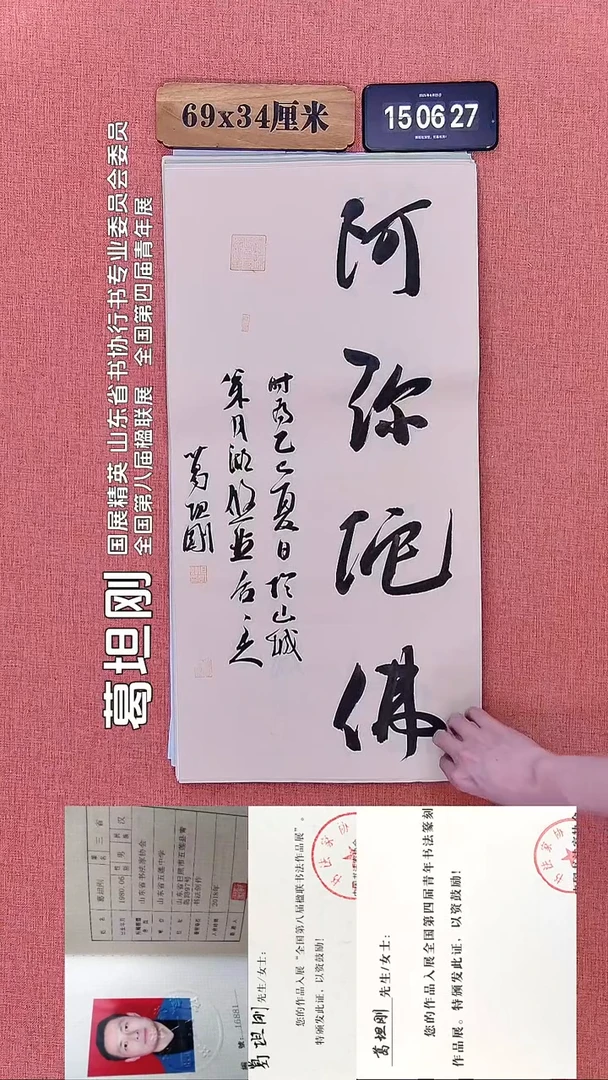 69x34厘米
15 06 27
阿弥陀佛
时为乙巳夏日于山城
葛坦刚
葛坦刚
国展精英 山东省书协行书专业委员会委员
全国第八届楹联展 全国第四届青年展
山东省书法家协会
山东省五莲中学
书法创作
1980.06
16881
葛坦刚 先生/女士：
您的作品入展“全国第八届楹联书法作品展”。
特颁发此证，以资鼓励！
葛坦刚 先生/女士：
您的作品入展全国第四届青年书法篆刻
作品展。特颁发此证，以资鼓励！